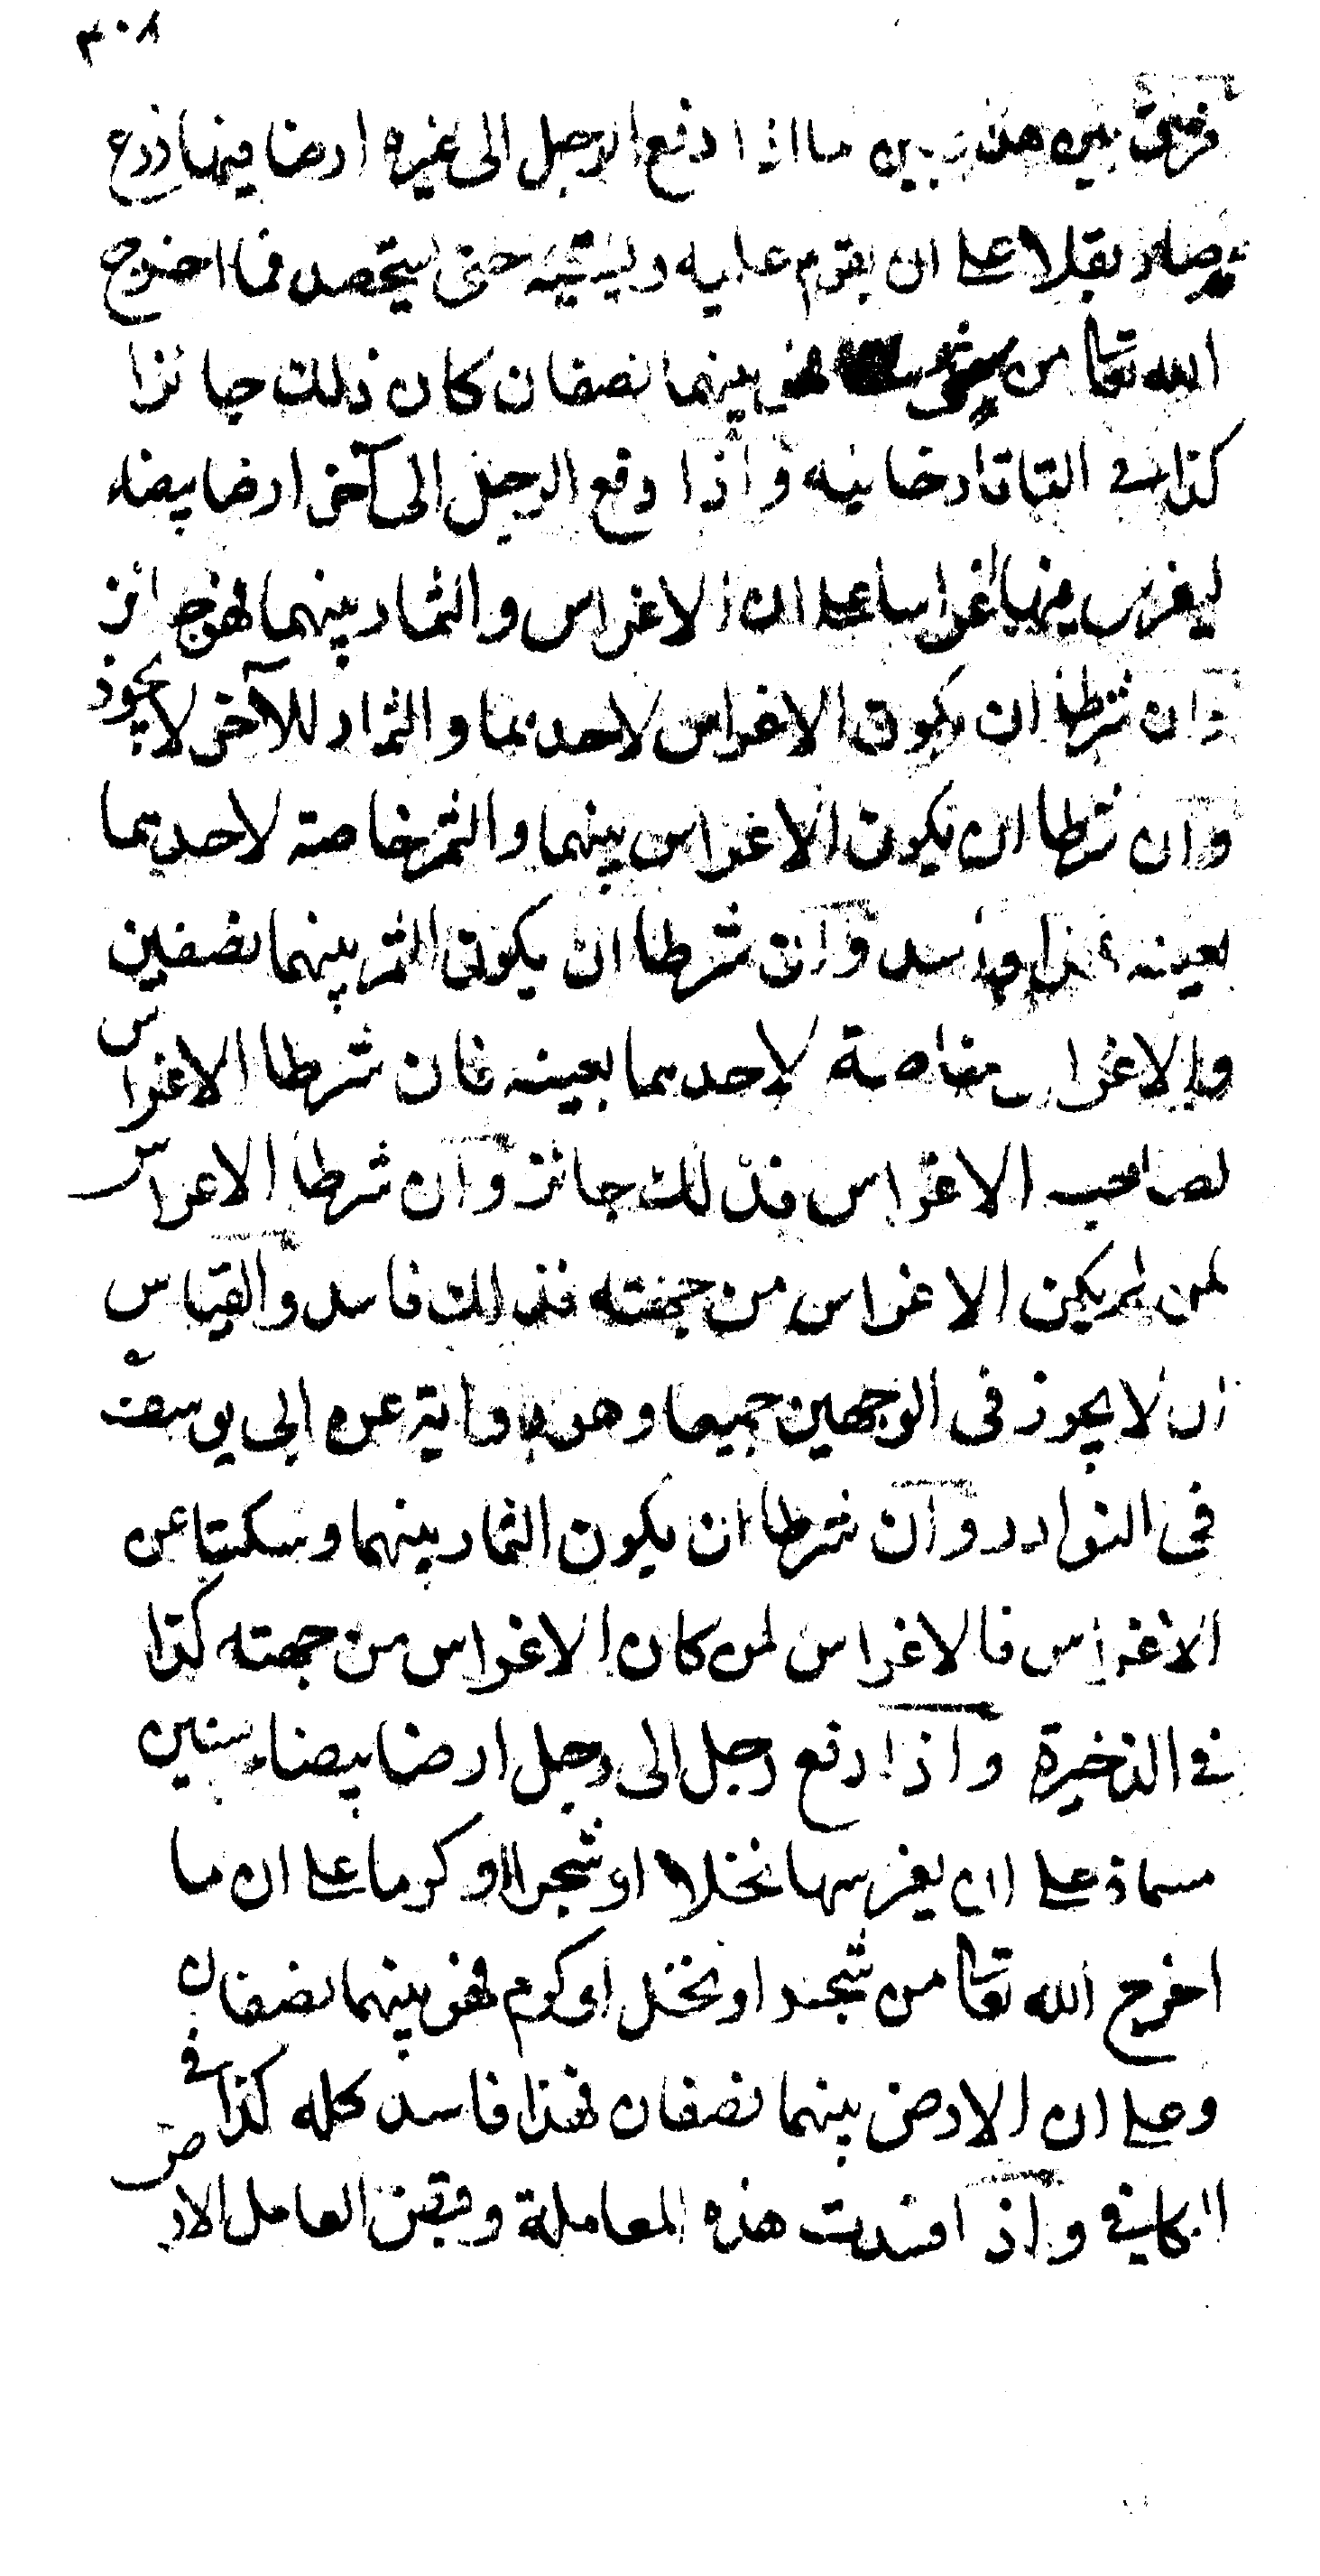 ٣٠٨
فرق بين هذا وبين ما اذا دفع الرجل الى غيره ارضا فيها زرع
صار بقلا على ان يقوم عليه ويسقيه حتى يستحصد فما اخرج
الله تعا من شئ فهو بينهما نصفان كان ذلك جائزا
كذا في التاتارخانيه واذا دفع الرجل الى آخر ارضا بيضاء
ليغرس فيها اغراسا على ان الاغراس والثمار بينهما فهو جائز
وان شرطا ان يكون الاغراس لاحدهما والثمار للآخر لا يجوز
وان شرطا ان يكون الاغراس بينهما والثمر خاصة لاحدهما
بعينه فهذا فاسد وان شرطا ان يكون الثمر بينهما نصفين
والاغراس خاصة لاحدهما بعينه فان شرطا الاغراس
لصاحب الاغراس فذلك جائز وان شرطا الاغراس
لمن لم يكن الاغراس من جهته فذلك فاسد والقياس
ان لا يجوز في الوجهين جميعا وهو رواية عن ابي يوسف
في النوادر وان شرطا ان يكون الثمار بينهما وسكتا عن
الاغراس فالاغراس لمن كان الاغراس من جهته كذا
في الذخيرة واذا دفع رجل الى رجل ارضا بيضاء سنين
مسماة على ان يغرسها نخلا او شجرا او كرما على ان ما
اخرج الله تعا من شجر او نخل او كرم فهو بينهما نصفان
وعلى ان الارض بينهما نصفان فهذا فاسد كله كذا في
الكافي واذا فسدت هذه المعاملة وقبض العامل الارض